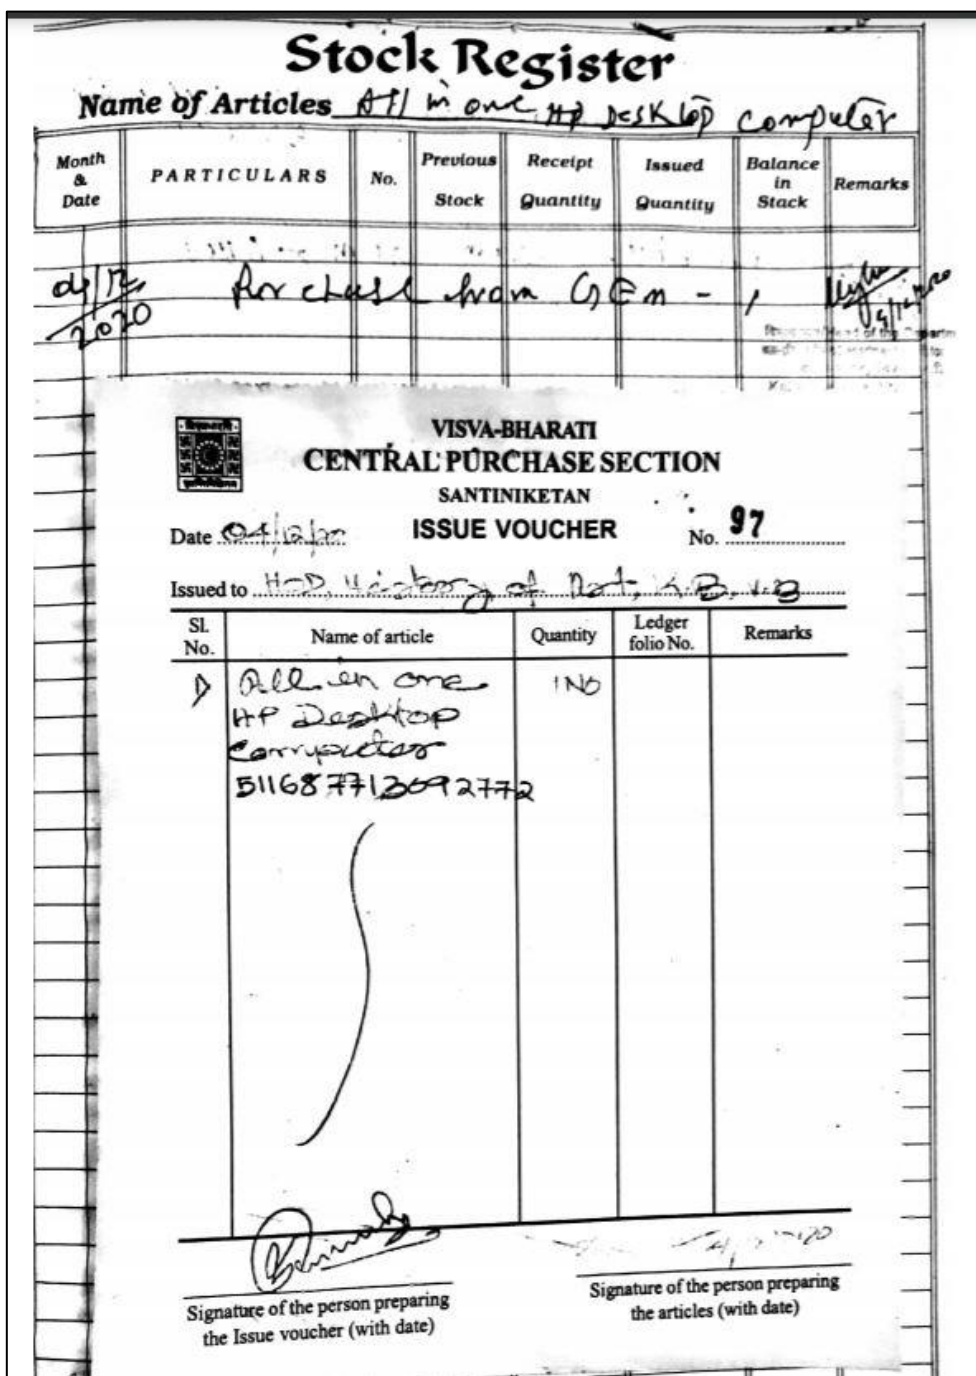 Stock Register
Name of Articles All in one HP Desktop Computer
Month & Date PARTICULARS No. Previous Stock Receipt Quantity Issued Quantity Balance in Stack Remarks
04/12/2020 Purchase from GEM - 1
VISVA-BHARATI
CENTRAL PURCHASE SECTION
SANTINIKETAN
ISSUE VOUCHER
Date 04/12/20 No. 97
Issued to HOD, History of Art, K.B, V.B
Sl. No. Name of article Quantity Ledger folio No. Remarks
1) All in one 1 NO
HP Desktop
Computer
511687713092772
4/12/2020
Signature of the person preparing
the Issue voucher (with date)
Signature of the person preparing
the articles (with date)